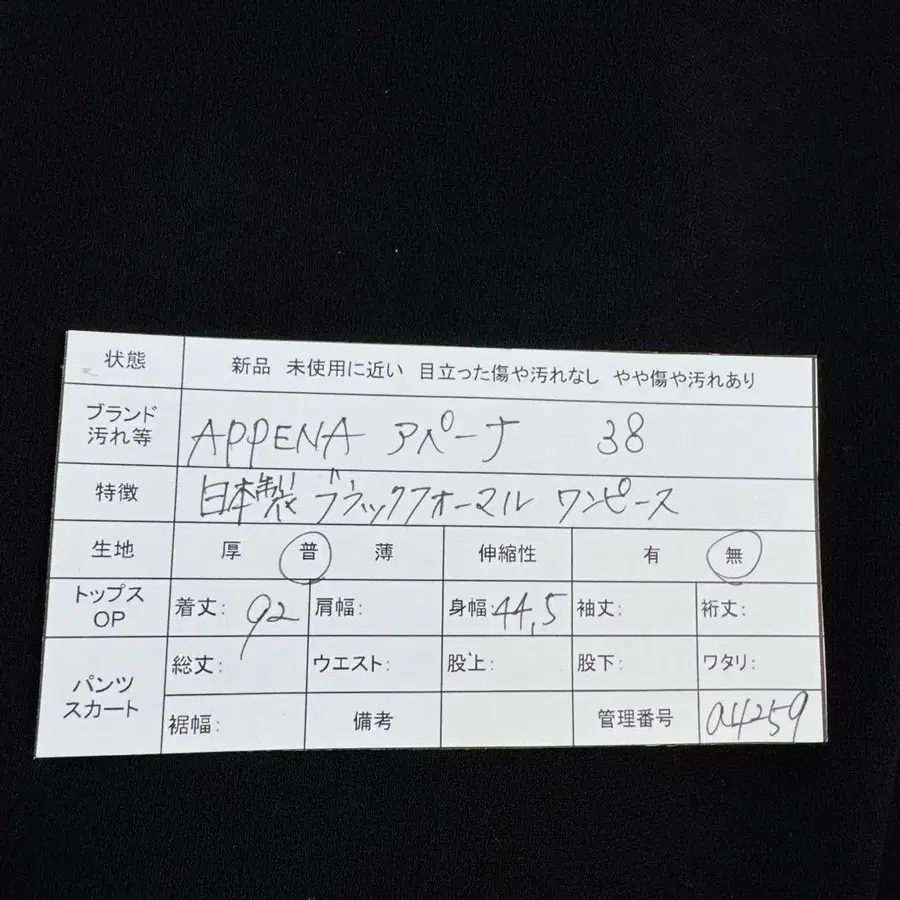 状態 新品 未使用に近い 目立った傷や汚れなし やや傷や汚れあり
ブランド
汚れ等 APPENA アペーナ 38
特徴 日本製 ブラックフォーマル ワンピース
生地 厚 普 薄 伸縮性 有 無
トップス
OP 着丈: 92 肩幅: 身幅: 44,5 袖丈: 裄丈:
パンツ
スカート 総丈: ウエスト: 股上: 股下: ワタリ:
裾幅: 備考 管理番号 04259